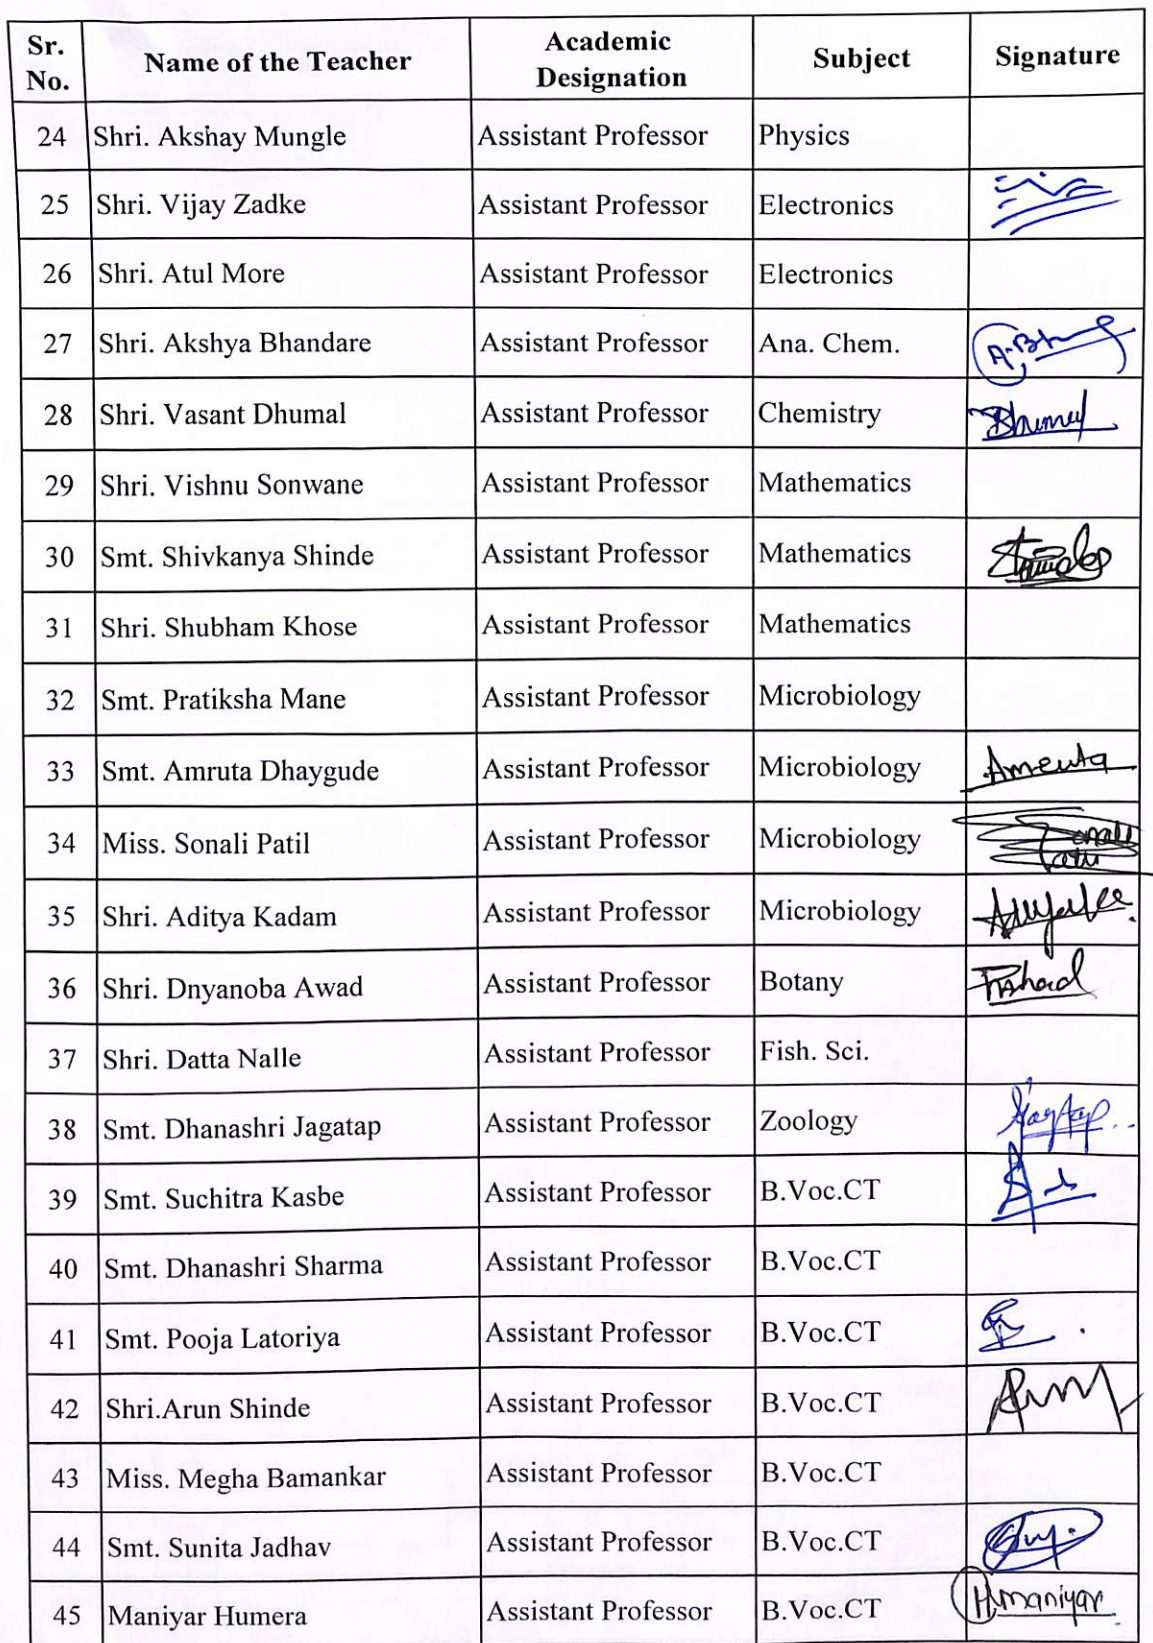 Sr. No. Name of the Teacher Academic Designation Subject Signature
24 Shri. Akshay Mungle Assistant Professor Physics
25 Shri. Vijay Zadke Assistant Professor Electronics
26 Shri. Atul More Assistant Professor Electronics
27 Shri. Akshya Bhandare Assistant Professor Ana. Chem.
28 Shri. Vasant Dhumal Assistant Professor Chemistry
29 Shri. Vishnu Sonwane Assistant Professor Mathematics
30 Smt. Shivkanya Shinde Assistant Professor Mathematics
31 Shri. Shubham Khose Assistant Professor Mathematics
32 Smt. Pratiksha Mane Assistant Professor Microbiology
33 Smt. Amruta Dhaygude Assistant Professor Microbiology
34 Miss. Sonali Patil Assistant Professor Microbiology
35 Shri. Aditya Kadam Assistant Professor Microbiology
36 Shri. Dnyanoba Awad Assistant Professor Botany
37 Shri. Datta Nalle Assistant Professor Fish. Sci.
38 Smt. Dhanashri Jagatap Assistant Professor Zoology
39 Smt. Suchitra Kasbe Assistant Professor B.Voc.CT
40 Smt. Dhanashri Sharma Assistant Professor B.Voc.CT
41 Smt. Pooja Latoriya Assistant Professor B.Voc.CT
42 Shri.Arun Shinde Assistant Professor B.Voc.CT
43 Miss. Megha Bamankar Assistant Professor B.Voc.CT
44 Smt. Sunita Jadhav Assistant Professor B.Voc.CT
45 Maniyar Humera Assistant Professor B.Voc.CT Hmaniyar